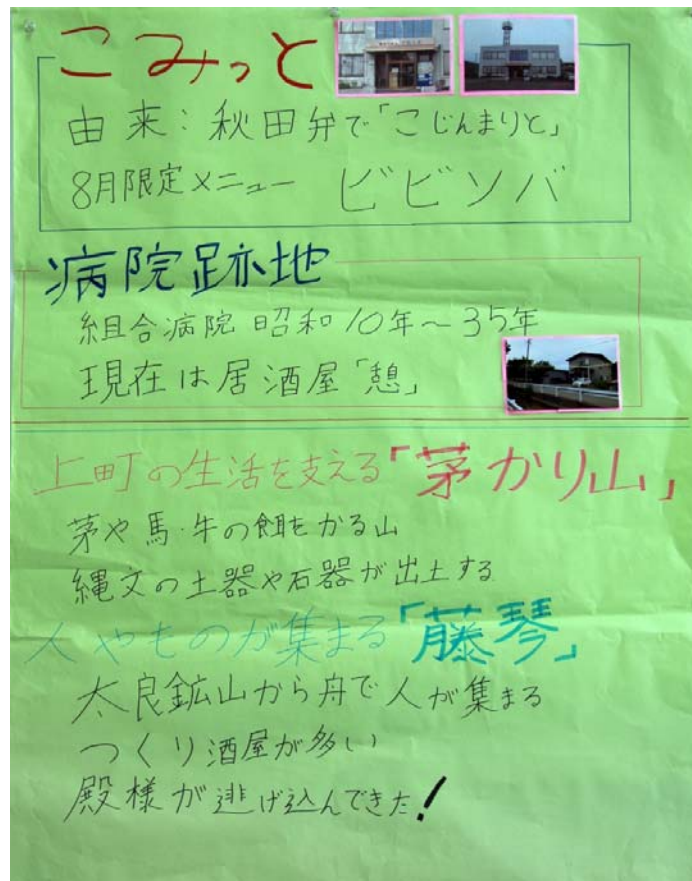 こみっと
由来:秋田弁で「こじんまりと」
8月限定メニュー ビビソバ
病院跡地
組合病院 昭和10年～35年
現在は居酒屋「憩」
上町の生活を支える「茅かり山」
茅や馬・牛の餌をかる山
縄文の土器や石器が出土する
人やものが集まる「藤琴」
太良鉱山から舟で人が集まる
つくり酒屋が多い
殿様が逃げ込んできた!